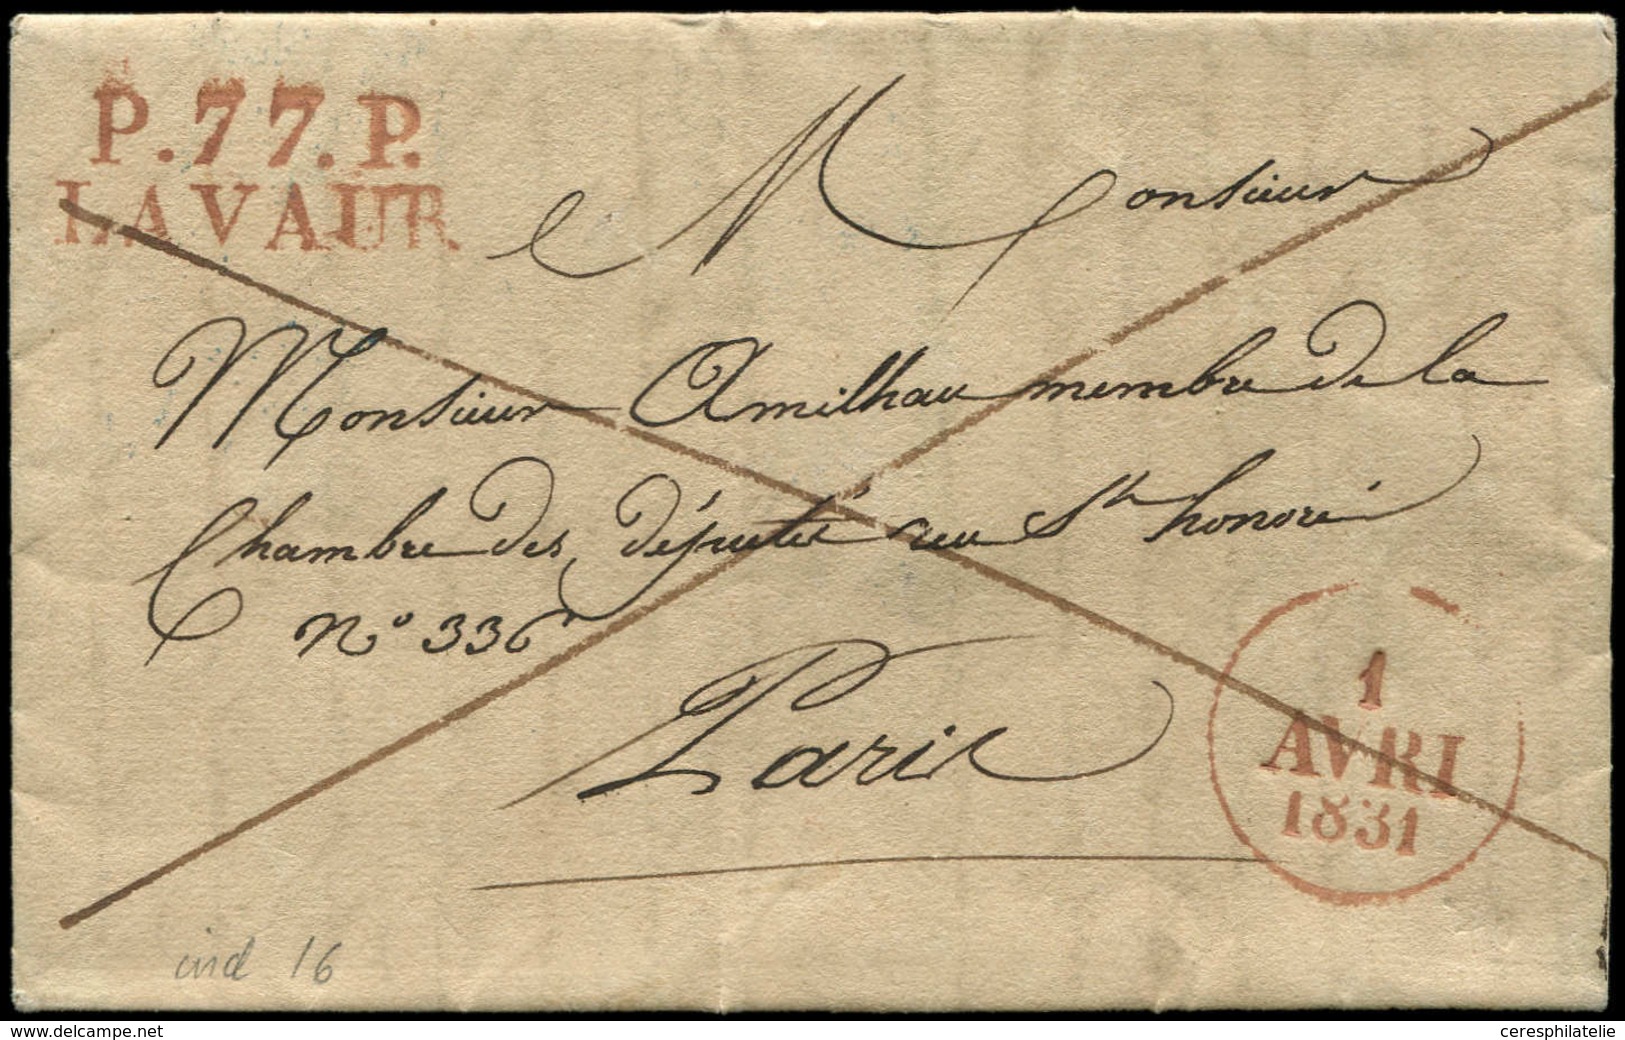 P.77.P.
LAVAUR
Monsieur
Monsieur Amilhau membre de la
Chambre des députés rue St honoré
N° 336
Paris
1
AVRI
1831
ind 16
www.delcampe.net
ceresphilatelie